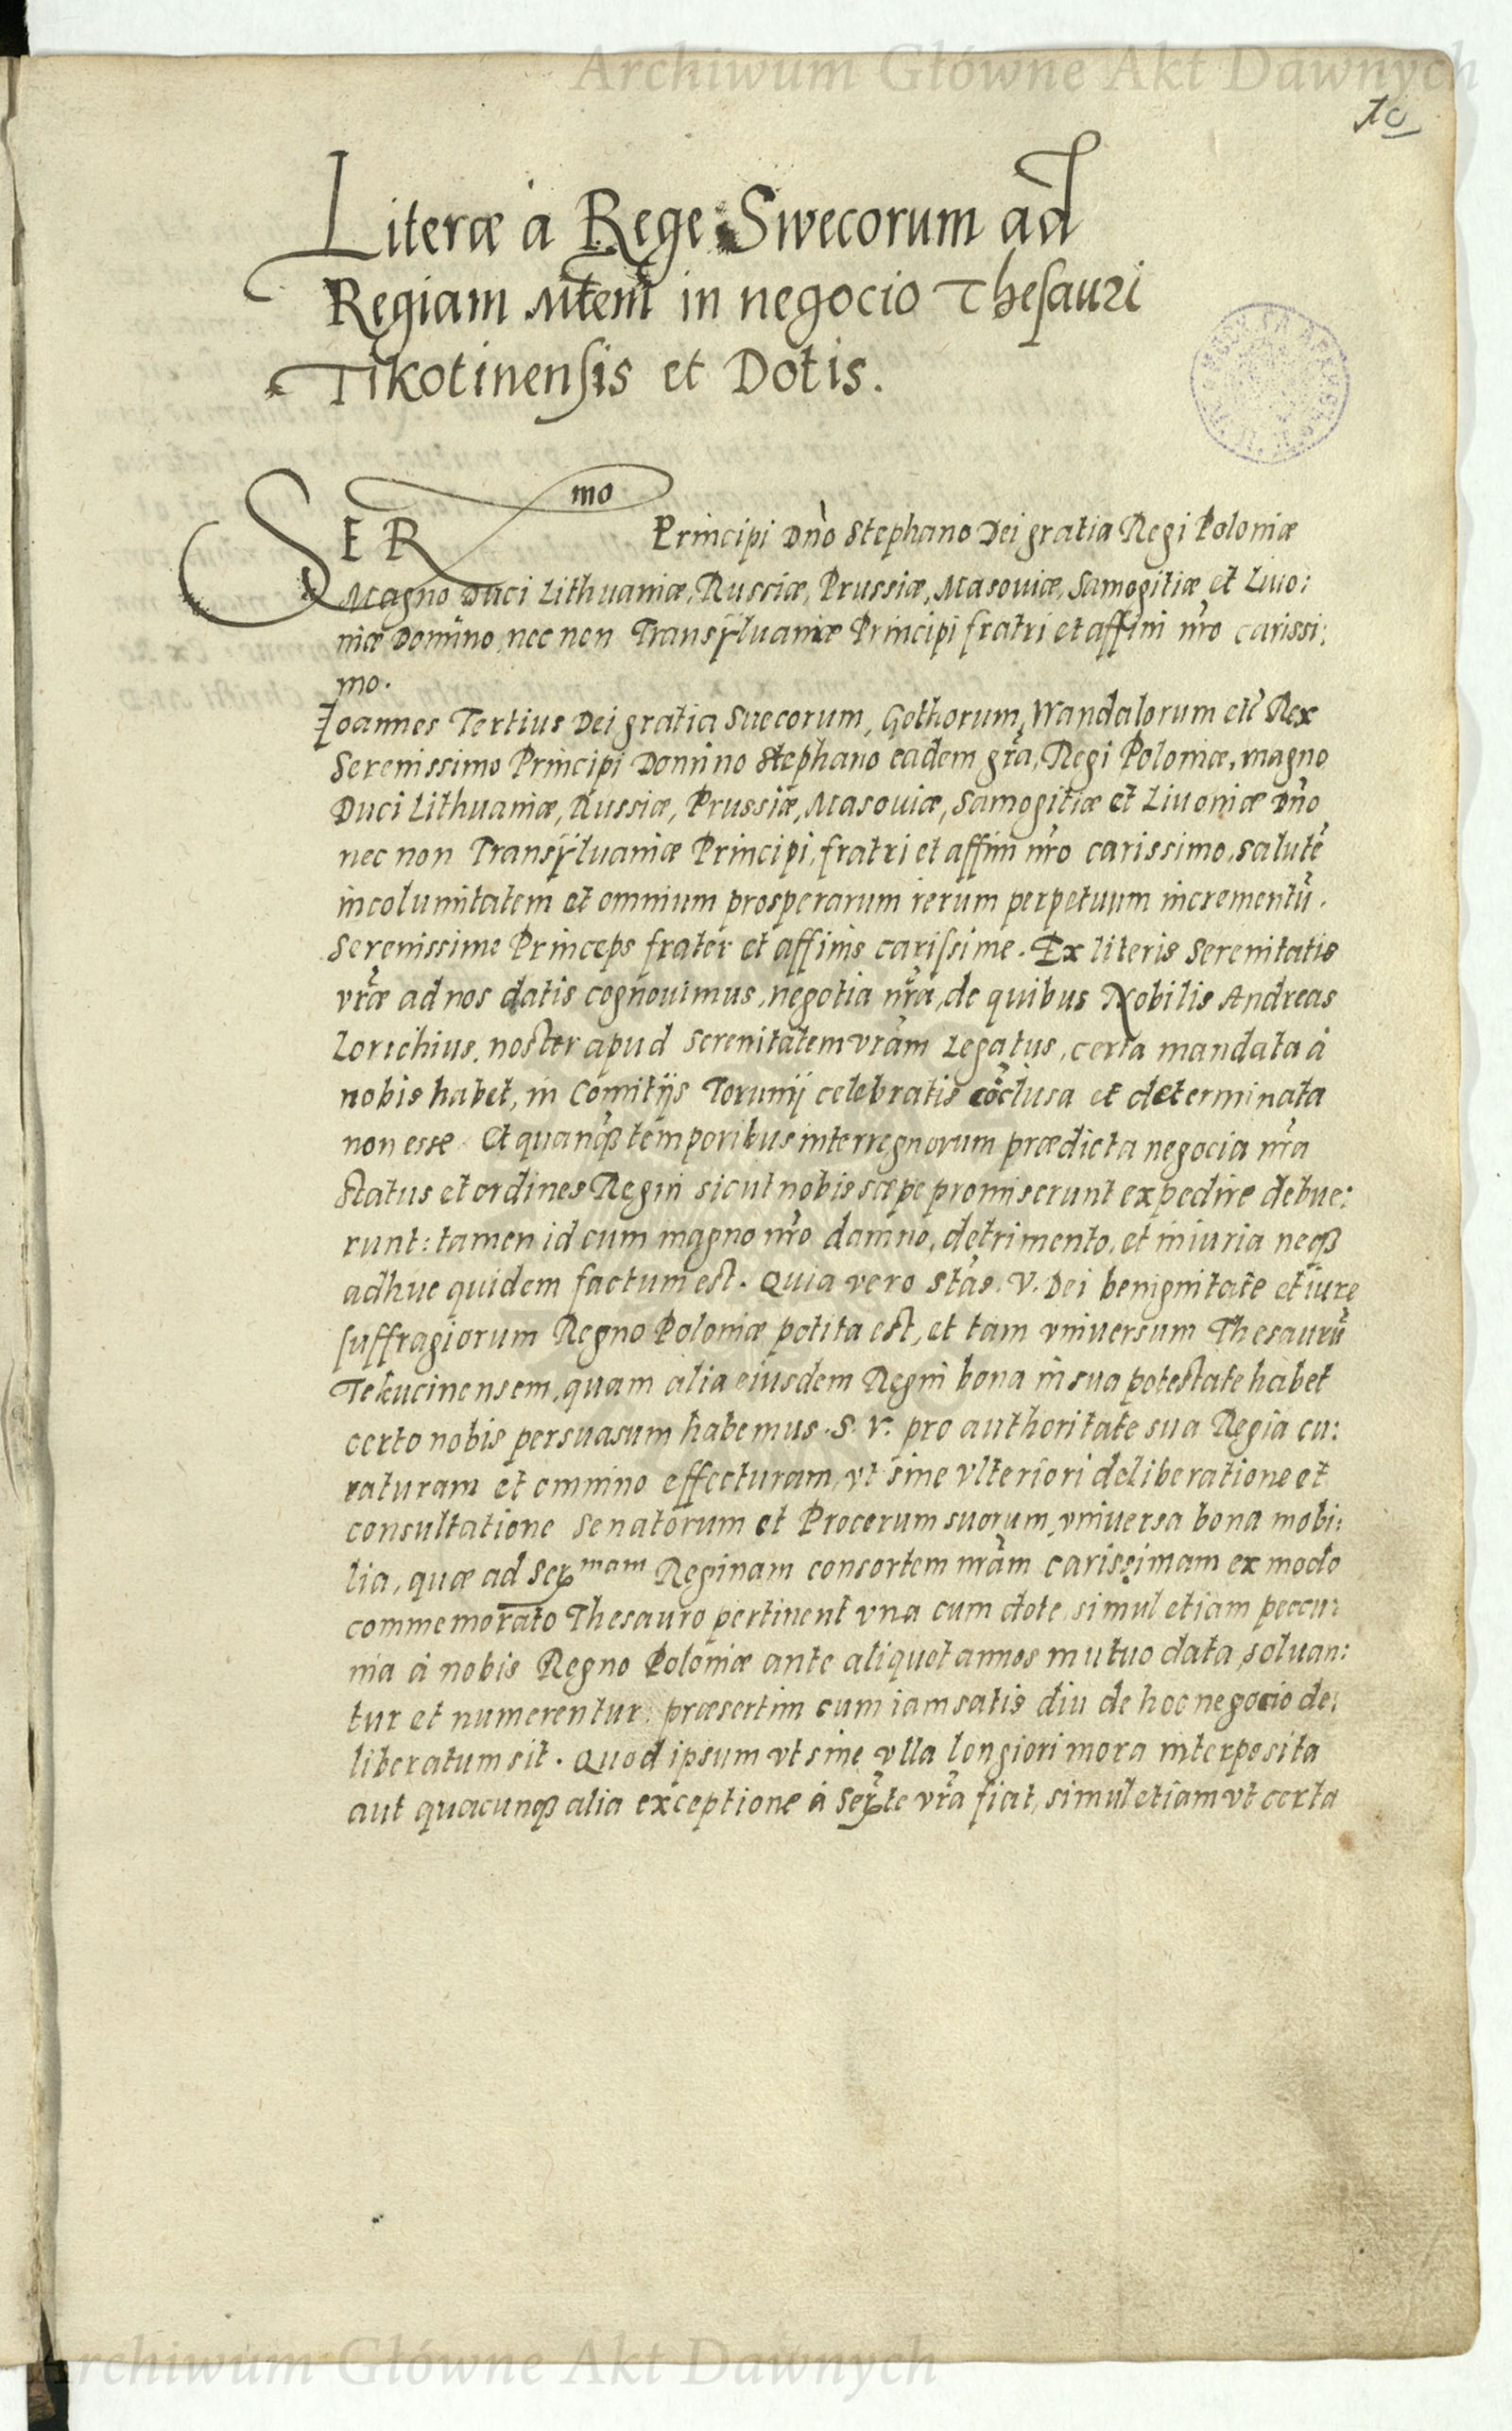 Archiwum Główne Akt Dawnych
10
Literæ à Rege Swecorum ad
Regiam Mtem̃ in negocio Thesauri
Tikotinensis et Dotis.
SER mo Principi Dño Stephano Dei gratia Regi Poloniæ
Magno Duci Lithuaniæ, Russiæ, Prussiæ, Masouiæ, Samogitiæ et Liuo:
niæ Domino, nec non Transÿluaniæ Principi fratri et affini nr̃o carissi:
mo.
Joannes Tertius Dei gratia Suecorum, Gothorum, Wandalorum etc̃ Rex
Serenissimo Principi Domino Stephano eadem gr̃a, Regi Poloniæ, magno
Duci Lithuaniæ, Russiæ, Prussiæ, Masouiæ, Samogitiæ et Liuoniæ Dño
nec non Transÿluaniæ Principi, fratri et affini nr̃o carissimo, salutẽ
incolumitatem et omnium prosperarum rerum perpetuum incrementũ.
Serenissime Princeps frater et affinis carissime. Ex literis Serenitatis
vr̃æ ad nos datis cognouimus, negotia nr̃a, de quibus Nobilis Andreas
Lorichius, noster apud Serenitatem vr̃am Legatus, certa mandata à
nobis habet, in Comitijs Torunij celebratis cõclusa et determinata
non esse. Et quanqȝ temporibus interregnorum prædicta negocia nr̃a
status et ordines Regni sicut nobis sæpe promiserunt expedire debue:
runt: tamen id cum magno nr̃o damno, detrimento, et iniuria neqȝ
adhuc quidem factum est. Quia vero Stas. V. Dei benignitate et iure
suffragiorum Regno Poloniæ potita est, et tam vniuersum Thesaurũ
Tekucinensem, quam alia eiusdem Regni bona in sua potestate habet
certo nobis persuasum habemus. S. V. pro authoritate sua Regia cu:
raturam et omnino effecturam, vt sine vlteriori deliberatione et
consultatione Senatorum et Procerum suorum, vniuersa bona mobi:
lia, quæ ad Ser mam Reginam consortem nr̃am carissimam ex modo
commemorato Thesauro pertinent vna cum dote, simul etiam peccu:
nia à nobis Regno Poloniæ ante aliquot annos mutuo data, soluan:
tur et numerentur: præsertim cum iam satis diu de hoc negocio de:
liberatum sit. Quod ipsum vt sine vlla longiori mora interposita
aut quacunqȝ alia exceptione à Ser̃te vr̃a fiat, simul etiam vt certa
Archiwum Główne Akt Dawnych